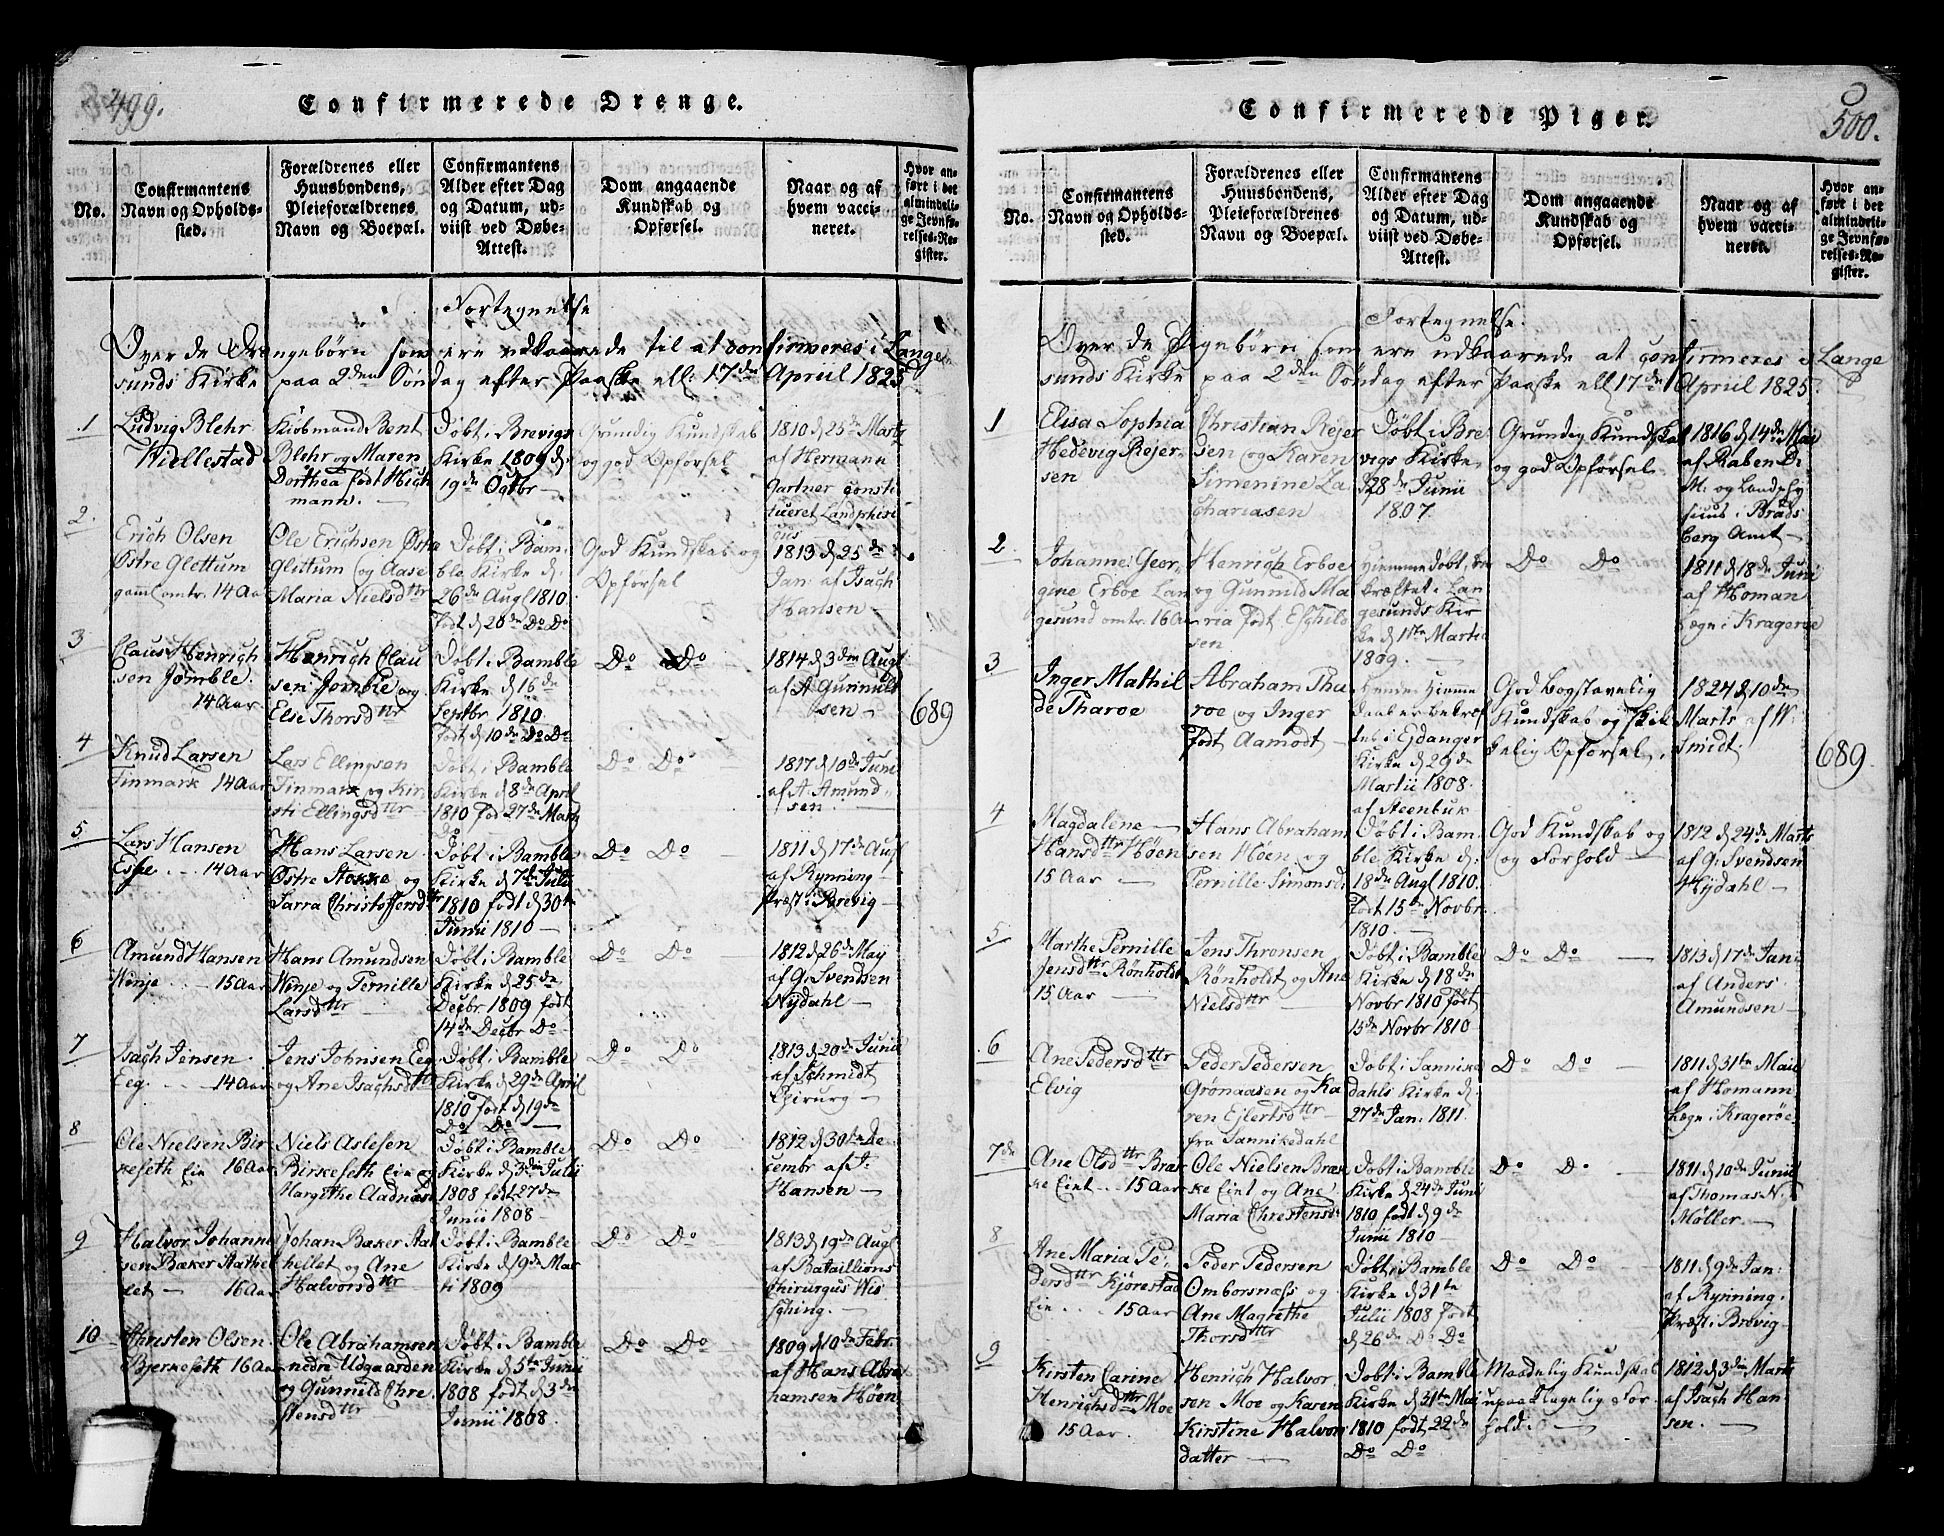 499.
Confirmerede Drenge.
No.
Confirmantens
Navn og Opholds-
sted.
Forældrenes eller
Huusbondens,
Pleieforældrenes
Navn og Boepæl.
Confirmantens
Alder efter Dag
og Datum, ud-
viist ved Døbe-
Attest.
Dom angaaende
Kundskab og
Opførsel.
Naar og af
hvem vacci-
neret.
Hvor an-
ført i det
almindeli-
ge Jevnfø-
relses-Re-
gister.
Fortegnelse
Over de Drengebørn som ere udkaarede til at confirmeres i Lange
sunds Kirke paa 2den Søndag efter Paaske ell: 17de April 1825
1
Ludvig Blehr
Wiellestad
Kiöbmand Bent
Blehr og Maren
Dorthea født Hich
mann.
Döbt i Brevigs
Kirke 1809 d:
19de Octbr
Grundig Kundskab
og god Opförsel
1810 d 25de Marts
af Hermann
Gartner consti
tueret Landphisi
cus
2.
Erich Olsen
Østre Glettum
gaml omtr. 14 Aar
Ole Erichsen Østre
Glittum og Aase
Maria Nielsdttr
Döbt i Bam-
ble Kirke d:
26de Augl 1810
født d 20de Do Do
God Kundskab og
Opförsel
1813 d 25de
Jan: af Isach
Hansen
3
Claus Henrich
sen Jomble
14 Aar
Henrich Clau
sen Jomble og
Else Thorsdttr
Döbt i Bamble
Kirke d 16de
Septbr 1810
født d 10de Do Do
Do Do
1814 d 3die Augl
af A Gunnuls
sen
689
4
Knud Larsen
Finmark 14 Aar
Lars Ellingsen
Finmark og Kir
sti Ellingsdttr
Döbt i Bamble
Kirke d 8de April
1810 fød 27de Marts
Do
Do Do
1817 d 10de June
af A Amund-
sen
5
Lars Hansen
Espe 14 Aar
Hans Larsen
Østre Stokke og
Sarra Christophersdttr
Döbt i Bamble
Kirke d 7de Julii
1810 født d 30te
Junii 1810
Do Do
1811 d 17de Augl
af Rynning
Præst i Brevig
6
Amund Hansen
Winje 15 Aar
Hans Amundsen
Winje og Pernille
Larsdttr
Döbt i Bamble
Kirke d 25de
Decbr 1809 født
14de Decbr Do
Do Do
1812 d 26de May
af G: Svendsen
Nydahl
7
Isach Jensen
Eeg. 14 Aar
Jens Johnsen Eeg
og Ane Isachsdttr
Döbt i Bamble
Kirke d 29de April
1810 født d 19de
Do Do
Do Do
1813 d 20de Junii
af Schmidt
Chirurg
8
Ole Nielsen Bir
keseth Eie 16 Aar
Niels Aslesen
Birkeseth Eie og
Margithe Aadnæs
Döbt i Bamble
Kirke d 3die Julii
1808 født 27de
Junii 1808
Do Do
1812 d 30te De
cembr af I:
Hansen
9
Halvor Johanne
sen Bæker Aathel
let 16 Aar
Johan Bæker Aat
hellet og Ane
Halvorsdttr
Döbt i Bamble
Kirke d 19de Mar
ti 1809
Do Do
1813 d 19de Augl
af Bataillions
Chirurgus Wis
sching.
10
Christen Olsen
Bjerkeseth 16 Aar
Ole Abrahamsen
nedre Udgaarden
og Gunnild Chre
stensdttr
Döbt i Bamble
Kirke d 5te Junii
1808 født d 3die
Junii 1808
Do Do
1809 d 10de Febr
af Hans Abra
hamsen Höen
500.
Confirmerede Piger.
No.
Confirmantens
Navn og Opholds-
sted.
Forældrenes eller
Huusbondens,
Pleieforældrenes
Navn og Boepæl.
Confirmantens
Alder efter Dag
og Datum, ud-
viist ved Døbe-
Attest.
Dom angaaende
Kundskab og
Opførsel.
Naar og af
hvem vacci-
neret.
Hvor an-
ført i det
almindeli-
ge Jevnfø-
relses-Re-
gister.
Fortegnelse.
Over de Pigebörn som ere udkaarede at confirmeres i Lange
sunds Kirke paa 2den Söndag efter Paaske ell 17de April 1825.
1
Elisa Sophia
Hedevig Rejer-
sen
Christian Rejer
sen og Karen
Simenine Za
chariasen
Döbt i Bre
vigs Kirke
d 28de Junii
1807.
Grundig Kundskab
og god Opförsel
1816 d 14de Mai
af Raben Di
M: og Landphy
sicus i Brads
berg Amt
2
Johanne Geor-
gine Erboe Lan
gesund omtr. 16 Aar
Henrich Erboe
og Gunnild Ma
ria født Eschild
sen
Hiemmedöbt, be
kræftet i Lan
gesunds Kir
ke d 1ste Martii
1809.
Do Do
1811 d 18de Juni
af Homan
Læge i Krageröe
3
Inger Mathil
de Tharoe
Abraham Tha
roe og Inger
født Aamodt
Hendes Hiemme
daab er bekræf
tet i Ejdanger
Kirke d 29de
Martii 1808.
af Steenbuk
God bogstavelig
Kundskab og skik
kelig Opförsel.
1824 d 10de
Marts af W:
Smidt.
689
4
Magdalene
Hansdttr Höen
15 Aar
Hans Abraham
sen Höen og
Pernille Simonsd:
Döbt i Bam-
ble Kirke d:
18de Augl 1810.
født 15de Novbr
1810.
God Kundskab og
og Forhold
1812 d 24de Marts
af G: Svendsen
Nydahl
5
Marthe Pernille
Jensdttr Rönholdt
15 Aar
Jens Thronsen
Rönholdt og Ane
Nielsdttr
Döbt i Bamble
Kirke d 18de
Novbr 1810 født
15de Novbr 1810
Do Do
1813 d 17de Jan:
af Anders
Amundsen
6
Ane Pedersdttr
Elvig
Peder Pedersen
Grönaasen og Ka
ren Ejlertsdttr
fra Sannikedahl
Döbt i Sannike
dahls Kirke d:
27de Jan: 1811.
Do Do
1811 d 31te Maii
af Homann
Læge i Krageröe
7de
Ane Olsdttr Bræk
ke Eiet 15 Aar
Ole Nielsen Bræk
ke Eiet og Ane
Maria Chrestensd:
Döbt i Bamble
Kirke d 24de Junii
1810 født d 9de
Junii 1810
Do Do
1811 d 10de Junii
af Thomas N.
Møller.
8
Ane Maria Pe-
dersdttr Kjörestad
Eie 15 Aar
Peder Pedersen
Omborsnæss og
Ane Magrethe
Thorsdttr
Döbt i Bamble
Kirke d 31te
Julii 1808 født
d 26de Do Do
Do Do
1811 d 9de Jan:
af Rynning.
Præst i Brevig
9
Kirsten Carine
Henrichsdttr Moe
15 Aar
Henrich Halvor
sen Moe og Karen
Kirstine Halvors
datter
Döbt i Bamble
Kirke d 31te Mai
1810 født 22de
Do Do
Maadelig Kundskab
upaaklagelig For
hold.
1812 d 3die Marts
af Isach Han
sen.